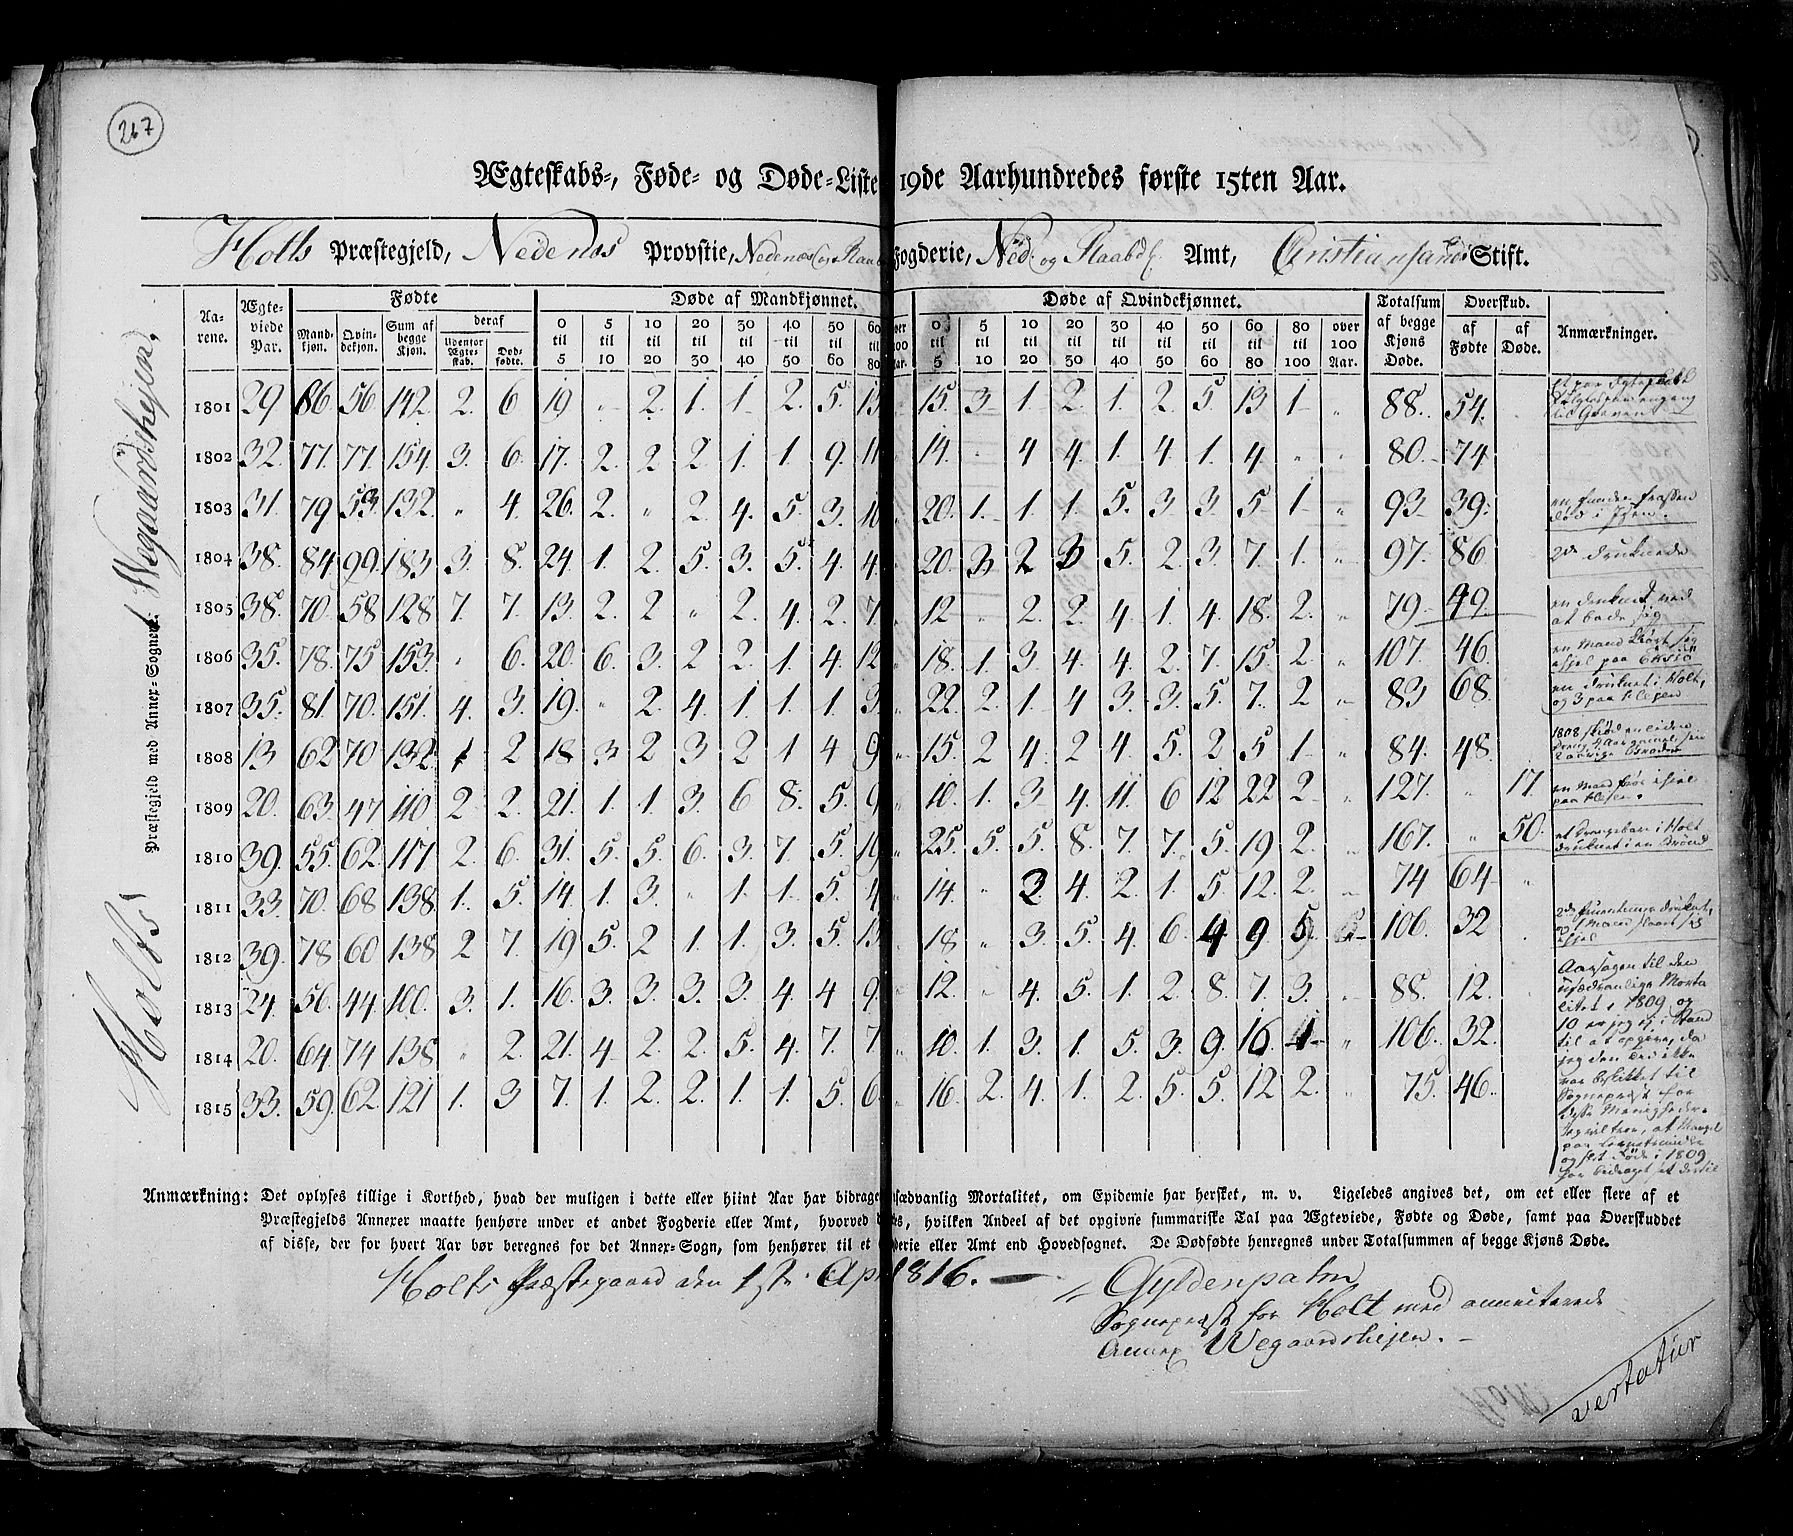 267
Ægteskabs-, Føde- og Døde-Liste 19de Aarhundredes første 15ten Aar.
Holts Præstegjeld, Nedenæs Provstie, Nedenæs og Raab Fogderie, Ned. og Raabd. Amt, Christiansands Stift.
Holts Præstegjeld med Annex-Sognene: Wegaardshejen,
Aarene. Ægteviede Par. Fødte Døde af Mandkjønnet. Døde af Qvindekjønnet. Totalsum af begge Kjøns Døde. Overskud. Anmærkninger.
Mandkjøn. Qvindekjøn. Sum af begge Kjøn. deraf Udenfor Ægteskab. Dødfødte. af Fødte af Døde.
0 til 5 5 til 10 10 til 20 20 til 30 30 til 40 40 til 50 50 til 60 60 til 80 over 100 Aar. 0 til 5 5 til 10 10 til 20 20 til 30 30 til 40 40 til 50 50 til 60 60 til 80 80 til 100 over 100 Aar.
1801 29 86 56 142 2 6 19 " 2 1 1 2 5 13 15 3 1 2 1 2 5 13 1 " 88 54
1802 32 77 77 154 3 6 17 2 2 2 1 1 9 11 14 " 4 4 1 4 1 4 " " 80 74
1803 31 79 53 132 " 4 26 2 " 2 4 5 3 10 " 20 1 1 1 5 3 3 5 1 " 93 39
1804 38 84 99 183 3 8 24 1 2 5 3 5 4 4 " 20 3 2 3 5 2 3 7 1 " 97 86 2de druknede
1805 38 70 58 128 7 7 13 2 2 " 2 4 2 7 " 12 " 2 2 4 1 4 18 2 " 79 49 en druknet ved at bade sig
1806 35 78 75 153 " 6 20 6 3 2 2 1 4 12 " 18 1 3 4 4 2 7 15 2 " 107 46 en Mand
1807 35 81 70 151 4 3 19 " 2 4 1 1 1 3 " 22 2 1 4 3 3 5 7 2 " 83 68 en druknet i Holt, og 3 paa
1808 13 62 70 132 1 2 18 3 2 3 2 1 4 9 " 15 2 4 2 4 5 2 5 1 " 84 48 1808
1809 20 63 47 110 2 2 21 1 1 3 6 8 5 9 " 10 1 3 4 11 6 12 22 2 " 127 " 17 en Mand
1810 39 55 62 117 2 6 31 5 5 6 3 7 5 19 " 25 5 5 8 7 7 5 19 2 " 167 " 50 i Holt druknet i en Brønd
1811 33 70 68 138 1 5 14 1 3 " 1 1 5 4 " 14 " 3 4 2 1 5 12 2 " 74 64 "
1812 39 78 60 138 2 7 19 5 2 1 1 3 5 13 18 " 3 5 4 6 4 9 5 106 32
1813 24 56 44 100 3 1 16 3 3 3 3 4 4 9 " 12 " 4 5 1 2 8 7 3 " 88 12
1814 20 64 74 138 " 2 21 4 2 2 5 4 7 7 " 10 1 3 1 5 3 9 16 1 " 106 32
1815 33 59 62 121 1 3 7 1 2 2 1 1 5 6 " 16 2 4 1 2 5 5 12 2 75 46
Aarsagen til den
usædvanlige Morta
litet i 1809 og
10 er jeg ej i Stand
til at opgive, da
jeg den Tid ikke
var beskikket til
Sognepræst for
disse Menigheder.
Jeg vil troe, at Mangel
paa
og slet Føde i 1809
har bidraget
Anmærkning: Det oplyses tillige i Korthed, hvad der muligen i dette eller hiint Aar har bidraget usædvanlig Mortalitet, om Epidemie har hersket, m. v. Ligeledes angives det, om eet eller flere af et
Præstegjelds Annexer maatte henhøre under et andet Fogderie eller Amt, hvorved , hvilken Andeel af det opgivne summariske Tal paa Ægteviede, Fødte og Døde, samt paa Overskuddet
af disse, der for hvert Aar bør beregnes for det Annex-Sogn, som henhører til et Fogderie eller Amt end Hovedsognet. De Dødfødte henregnes under Totalsummen af begge Kjøns Døde.
Holts Præstegaard den 1ste Apr 1816.
Gyldenpalm
Sognepræst for Holt med annecterede
Annex Wegaardshejen.
vertatur